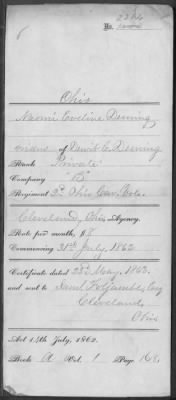 No.
Ohio
Naomi Eveline Deming
of Dewit C. Deming
Rank Private
Company "B"
Regiment 2d Ohio Cav. Vols.
Cleveland, Ohio Agency.
Rate per month, $8
Commencing 31st July, 1862
Certificate dated 23d May, 1863.
and sent to
Cleveland
Ohio
Act 14th July, 1862.
Book A Vol. 1 Page 168